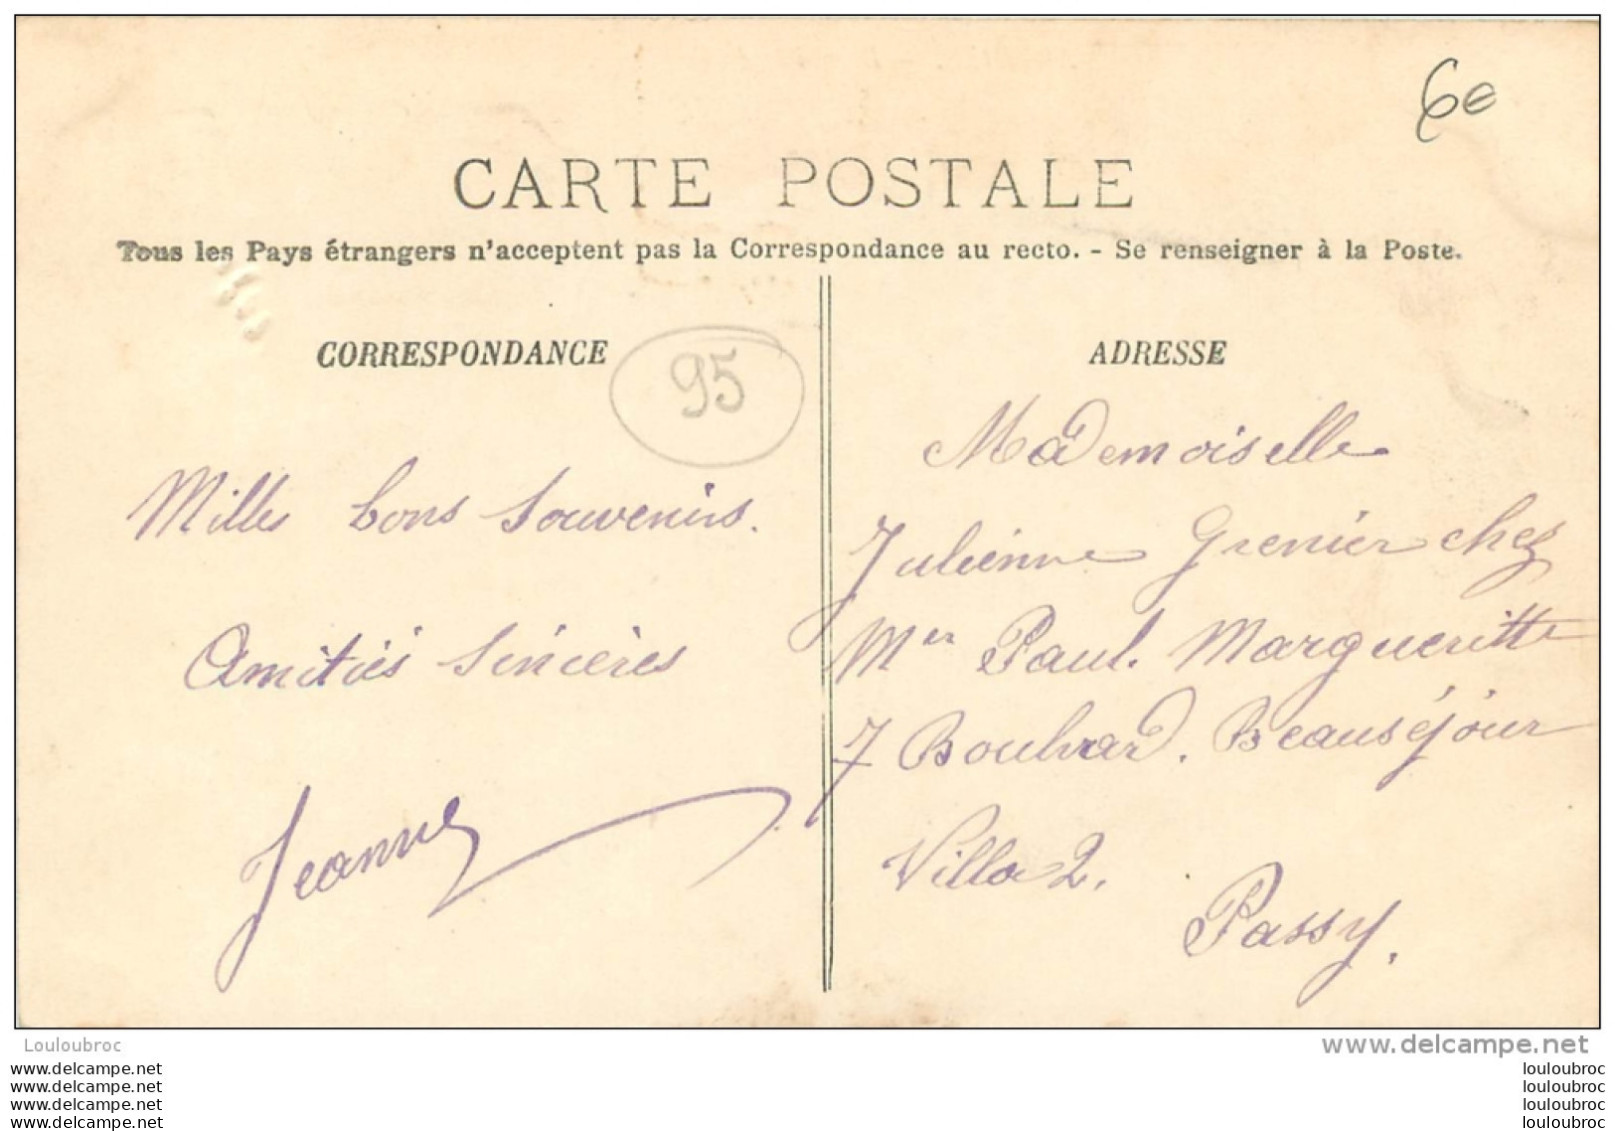 6e
CARTE POSTALE
Tous les Pays étrangers n'acceptent pas la Correspondance au recto. - Se renseigner à la Poste.
CORRESPONDANCE
95
Milles bons souvenirs.
Amitiés sincères
Jeanne
ADRESSE
Mademoiselle
Julienne Grenier chez
Mer Paul. Margueritte
7 Boulvard. Beauséjour
Villa 2.
Passy.
Louloubroc
www.delcampe.net
www.delcampe.net
www.delcampe.net
www.delcampe.net
www.delcampe.net
louloubroc
louloubroc
louloubroc
louloubroc